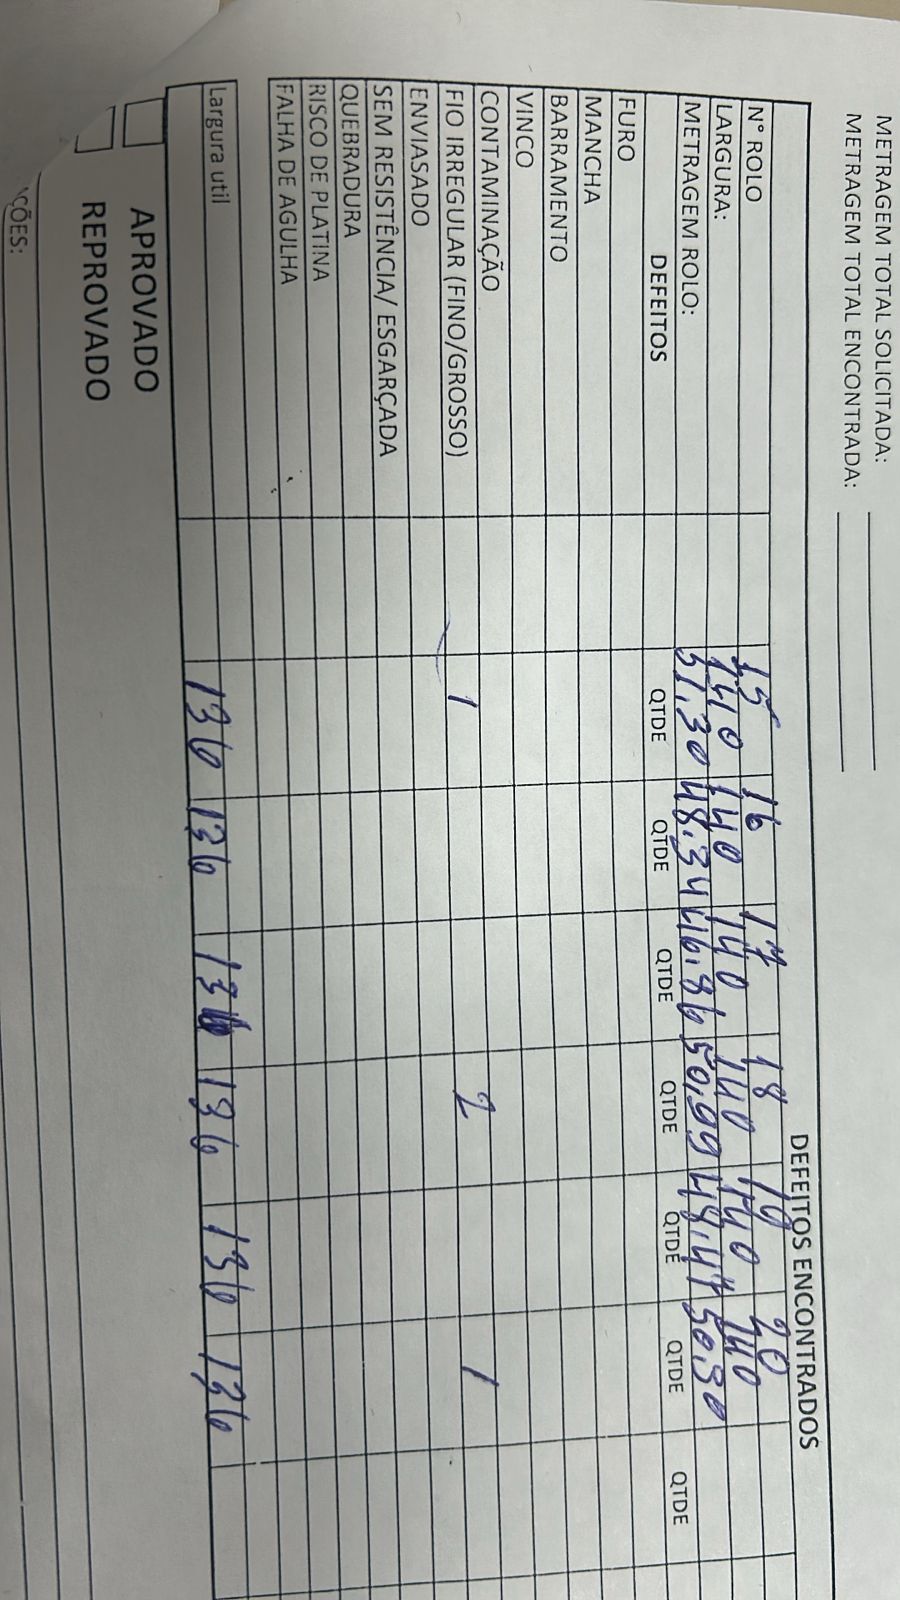 METRAGEM TOTAL SOLICITADA:
METRAGEM TOTAL ENCONTRADA:
DEFEITOS ENCONTRADOS
N° ROLO 15 16 17 18 19 20
LARGURA: 140 140 140 140 140 140
METRAGEM ROLO: 51,30 48,34 46,86 50,99 48,47 50,30
DEFEITOS QTDE QTDE QTDE QTDE QTDE QTDE QTDE
FURO
MANCHA
BARRAMENTO
VINCO
CONTAMINAÇÃO
FIO IRREGULAR (FINO/GROSSO) 1 2 1
ENVIASADO
SEM RESISTÊNCIA/ ESGARÇADA
QUEBRADURA
RISCO DE PLATINA
FALHA DE AGULHA
Largura util 136 136 136 136 136 136
APROVADO
REPROVADO
ÇÕES: